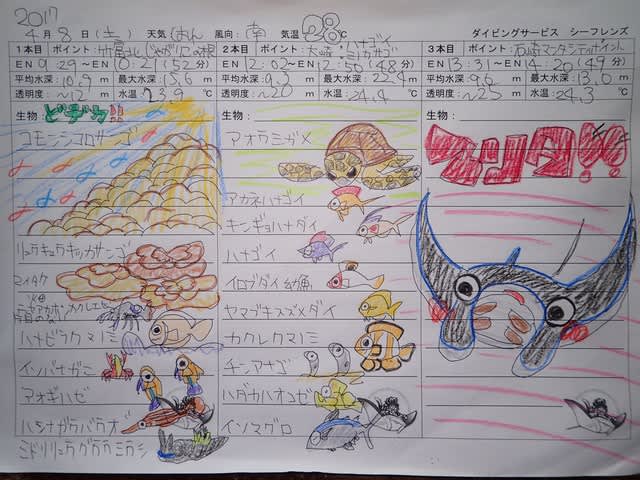 2017
4月8日(土) 天気(おん 風向:南 気温28℃ ダイビングサービス シーフレンズ
1本目 ポイント:竹富北じゃがりこの根
EN 9:29~EN 10:21(52分)
平均水深:10.9m 最大水深:15.6m
透明度:~12m 水温:23.9℃
生物:ビデカ!!
コモンシコロサンゴ
リュウキュウキッカサンゴ
マイタケ
ハナビラクマノミ
イソバナガニ
アオギハゼ
ハシナガウバウオ
ミドリリュウグウウミウシ
2本目 ポイント:大崎ハナゴイ
EN 12:02~EN 12:50(48分)
平均水深:9.3m 最大水深:22.4m
透明度:~20m 水温:24.4℃
生物:
アオウミガメ
アカネハナゴイ
キンギョハナダイ
ハナゴイ
イロブダイ幼魚
ヤマブキスズメダイ
カクレクマノミ
チンアナゴ
ハダカハオコゼ
イソマグロ
3本目 ポイント:石崎マンタシティポイント
EN 13:31~EN 14:20(49分)
平均水深:9.6m 最大水深:13.0m
透明度:~25m 水温:24.3℃
生物:
マンタ!!